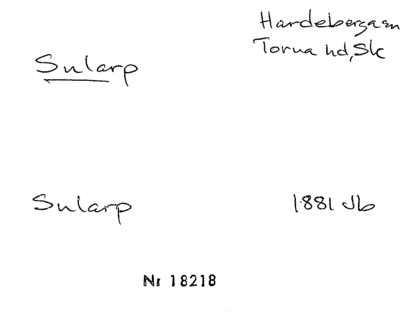 Hardeberga sn
Torna hd, Sk
Sularp
Sularp 1881 Jb
Nr 18218